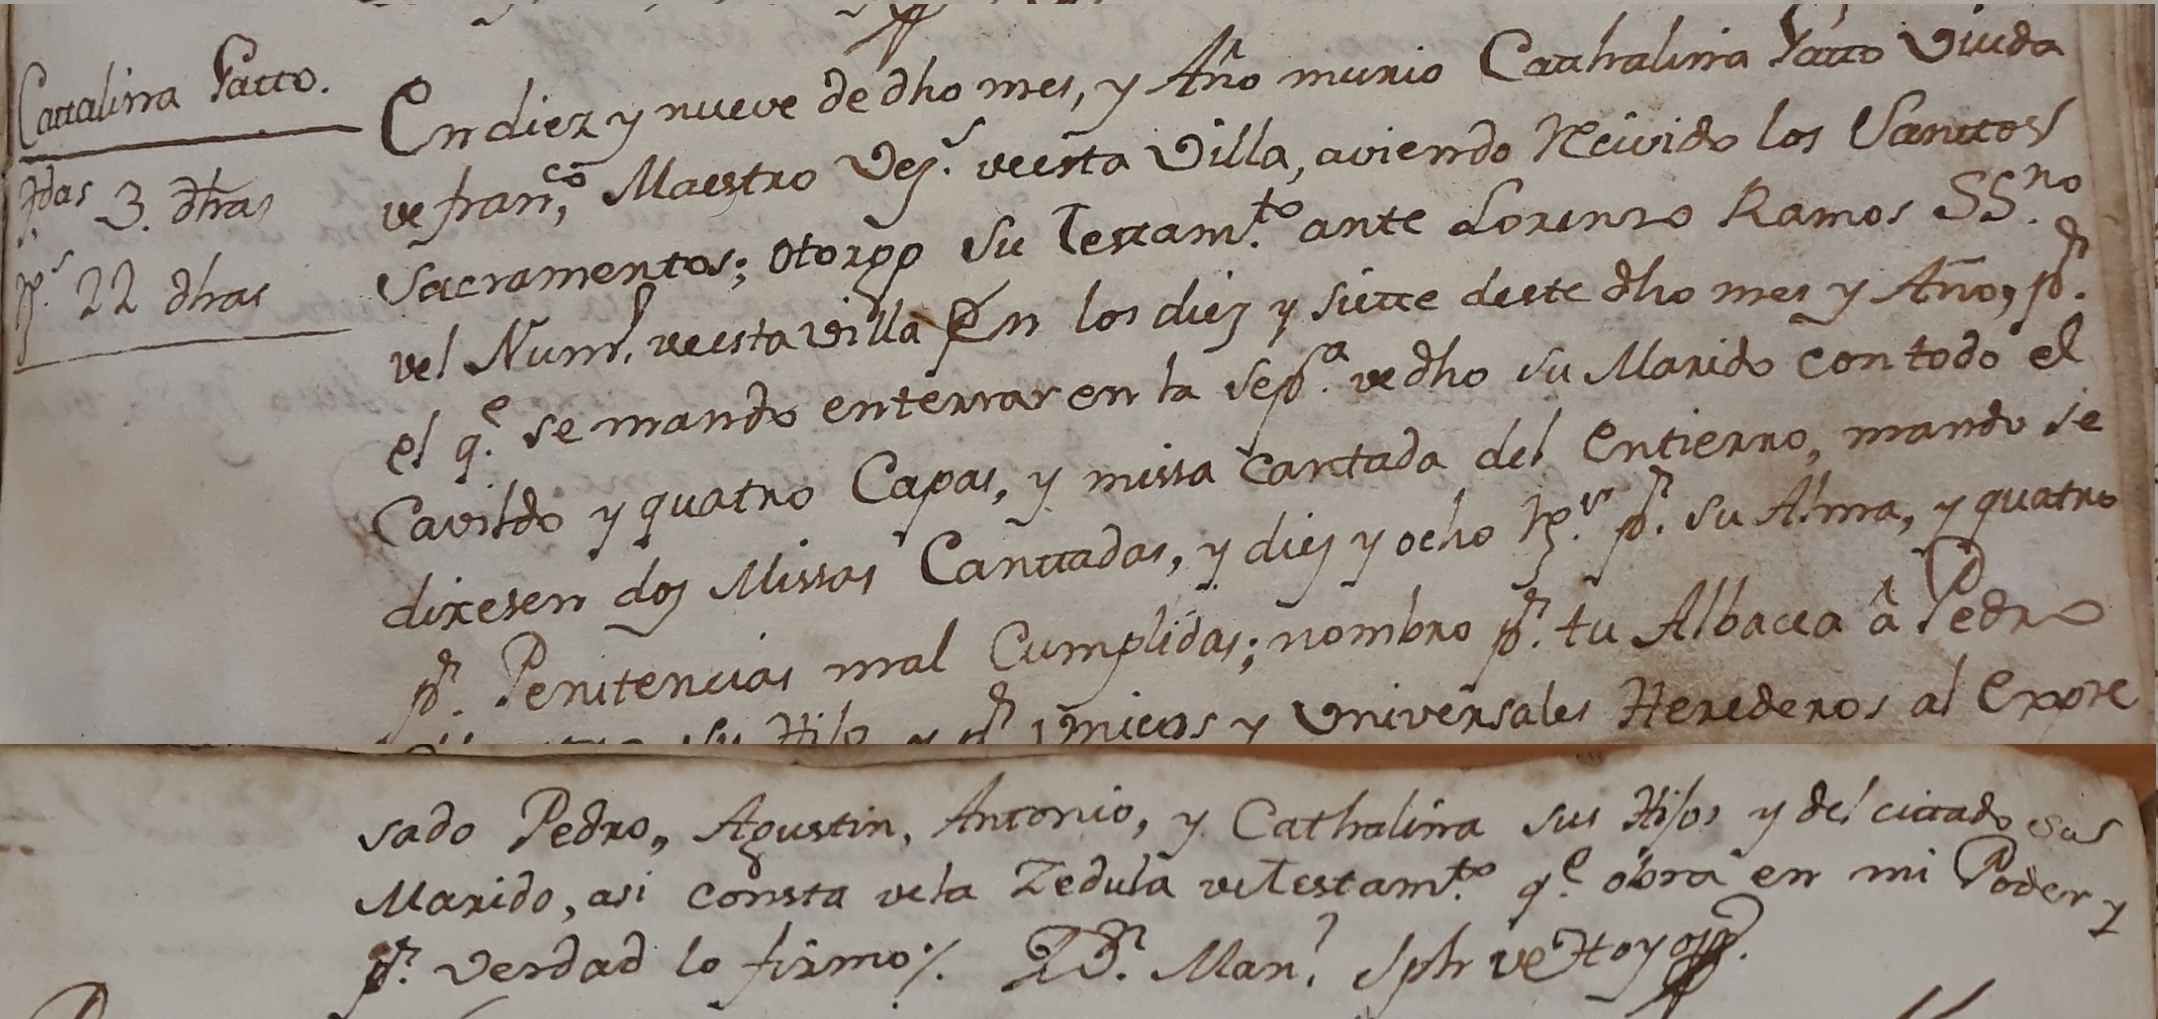 Cattalina Yatto.
Cdas 3. dhas
Rs 22 dhas
En diez y nueve de dho mes, y Año murio Catthalina Yatto Viuda
de franco, Maestro Vezo. de esta Villa, aviendo Recivido los Santtos
Sacramentos; Otorgo su Testamto. ante Lorenzo Ramos SSno.
del Numo. de esta Villa En los diez y siette deste dho mes y Año, pr.
el qe. se mando enterrar en la sepa. de dho su Marido con todo el
Cavildo y quatro Capas, y missa cantada del Entierro, mando se
dixesen dos Missas Canttadas, y diez y ocho Rs. pr. su Alma, y quatro
pr. Penitencias mal Cumplidas; nombro pr. tu Albacea â Pedro
su Hijo y pr. Vnicos y Universales Herederos al Expre
sado Pedro, Agustin, Antonio, y Cathalina sus Hijos y del cittado sus
Marido, asi consta de la Zedula de Testamto. qe. obra en mi Poder y
pr. verdad lo firmo./. Dn. Manl. Jph de Hoyos